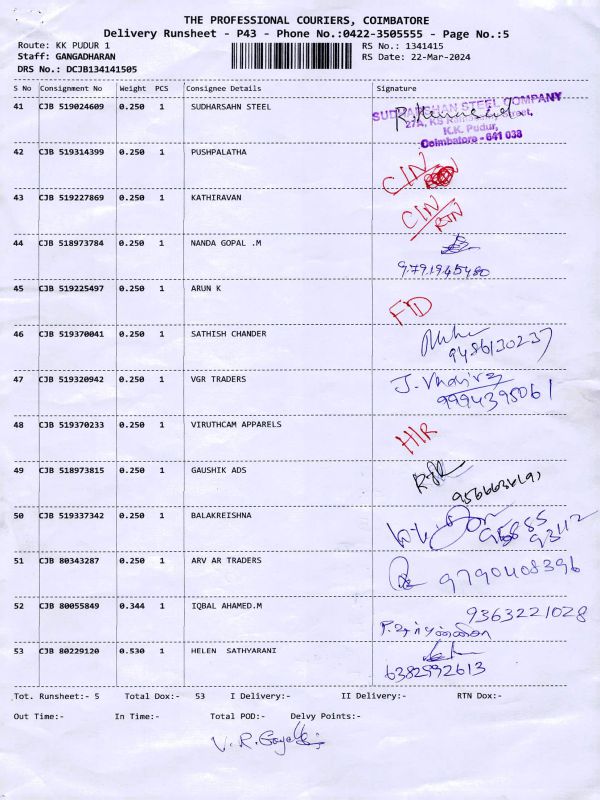 THE PROFESSIONAL COURIERS, COIMBATORE
Delivery Runsheet - P43 - Phone No.:0422-3505555 - Page No.:5
Route: KK PUDUR 1 RS No.: 1341415
Staff: GANGADHARAN RS Date: 22-Mar-2024
DRS No.: DCJB134141505
S No Consignment No Weight PCS Consignee Details Signature
41 CJB 519024609 0.250 1 SUDHARSAHN STEEL
SUDHARSHAN STEEL COMPANY
27A, KS Street,
K.K. Pudur,
Coimbatore - 641 038
42 CJB 519314399 0.250 1 PUSHPALATHA CIN
43 CJB 519227869 0.250 1 KATHIRAVAN CIN RTN
44 CJB 518973784 0.250 1 NANDA GOPAL .M
9791945480
45 CJB 519225497 0.250 1 ARUN K FID
46 CJB 519370041 0.250 1 SATHISH CHANDER
9486130237
47 CJB 519320942 0.250 1 VGR TRADERS
9994395061
48 CJB 519370233 0.250 1 VIRUTHCAM APPARELS HIR
49 CJB 518973815 0.250 1 GAUSHIK ADS
50 CJB 519337342 0.250 1 BALAKREISHNA
93112
51 CJB 80343287 0.250 1 ARV AR TRADERS 9790408396
52 CJB 80055849 0.344 1 IQBAL AHAMED.M 9363221028
53 CJB 80229120 0.530 1 HELEN SATHYARANI
6382592613
Tot. Runsheet:- 5 Total Dox:- 53 I Delivery:- II Delivery:- RTN Dox:-
Out Time:- In Time:- Total POD:- Delvy Points:-